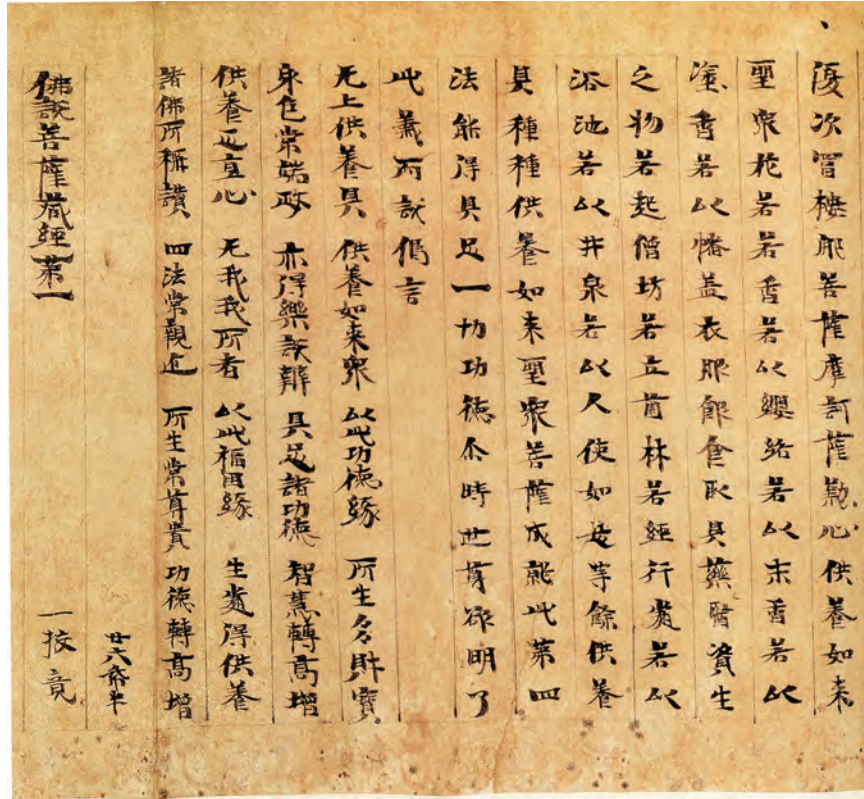 復次冨樓那菩薩摩訶薩歡心供養如來
聖衆花若若香若以纓絡若以末香若以
塗香若以幡盖衣服飲食臥具藥醫資生
之物若起僧坊若立菌林若經行處若以
浴池若以井泉若以人使如是等餘供養
具種種供養如来聖衆菩薩成就此第四
法能得具足一切功德尒時世尊欲明了
此義而說偈言
无上供養具 供養如来衆 以此功德緣 所生多財寶
身色常端政 亦得樂說辯 具足諸功德 智慧轉高增
供養正直心 无我我所者 以此福田緣 生處得供養
諸佛所稱讚 四法常親近 所生常尊貴 功德轉高增
廿六帋半
佛說菩薩藏經第一 一挍竟